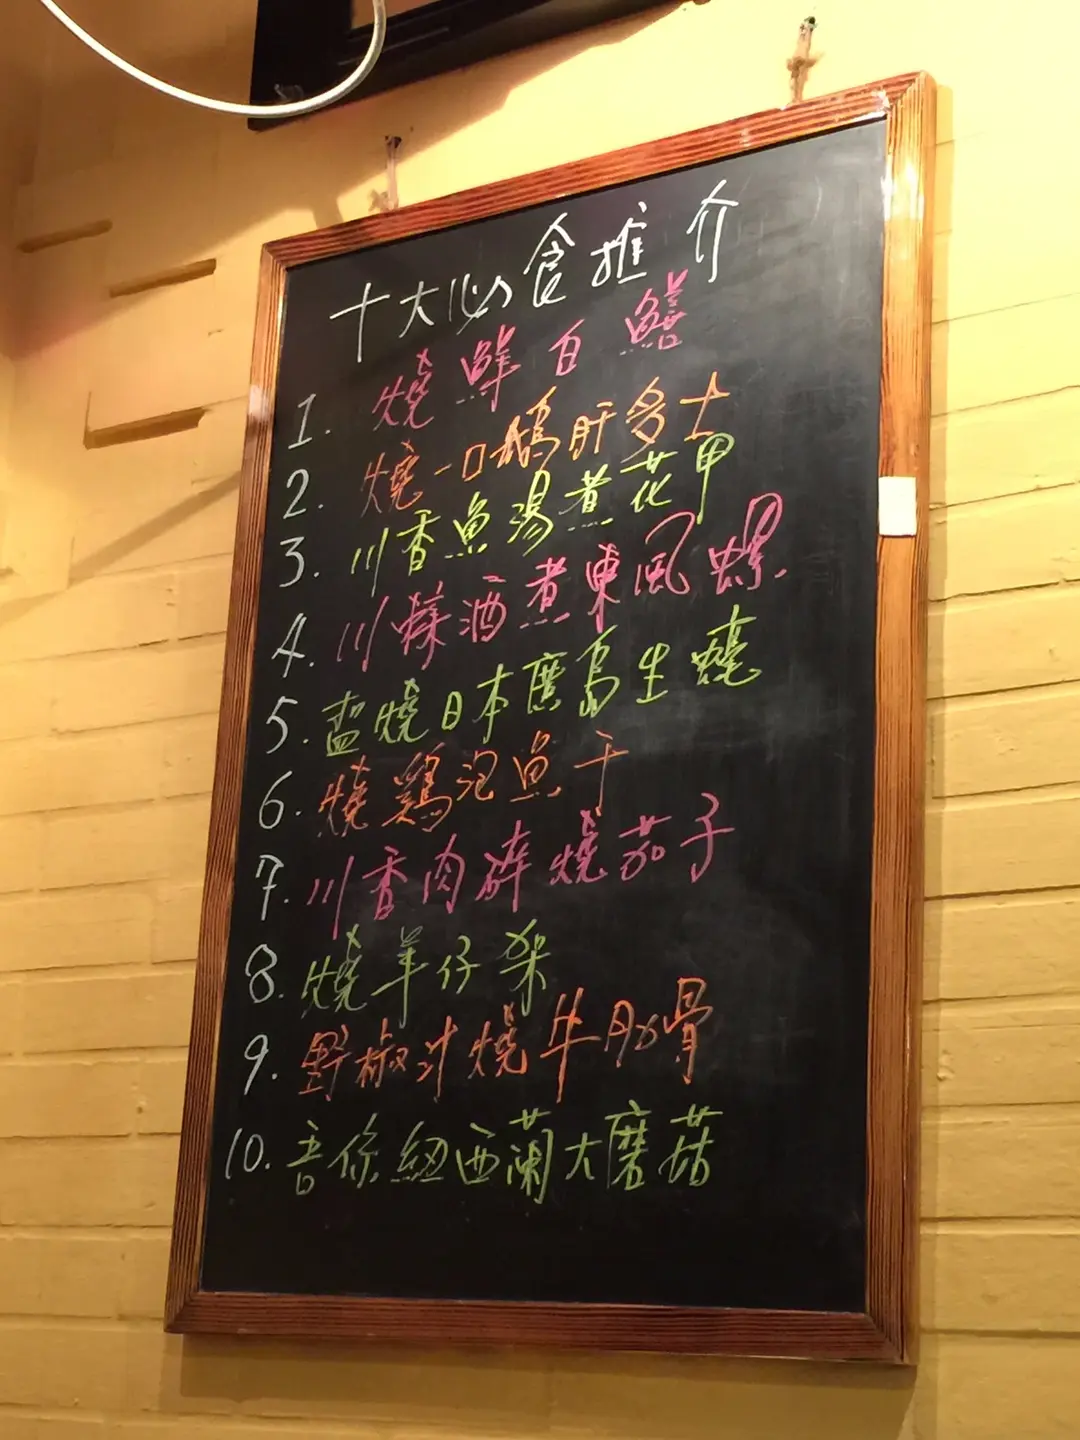 十大必食推介
1. 燒鮮白鱔
2. 燒一口鵝肝多士
3. 川香魚湯煮花甲
4. 川辣酒煮東風螺
5. 盐燒日本廣島生蠔
6. 燒鷄泡魚干
7. 川香肉碎燒茄子
8. 燒羊仔
9. 野椒汁燒牛肋骨
10. 紐西蘭大磨菇